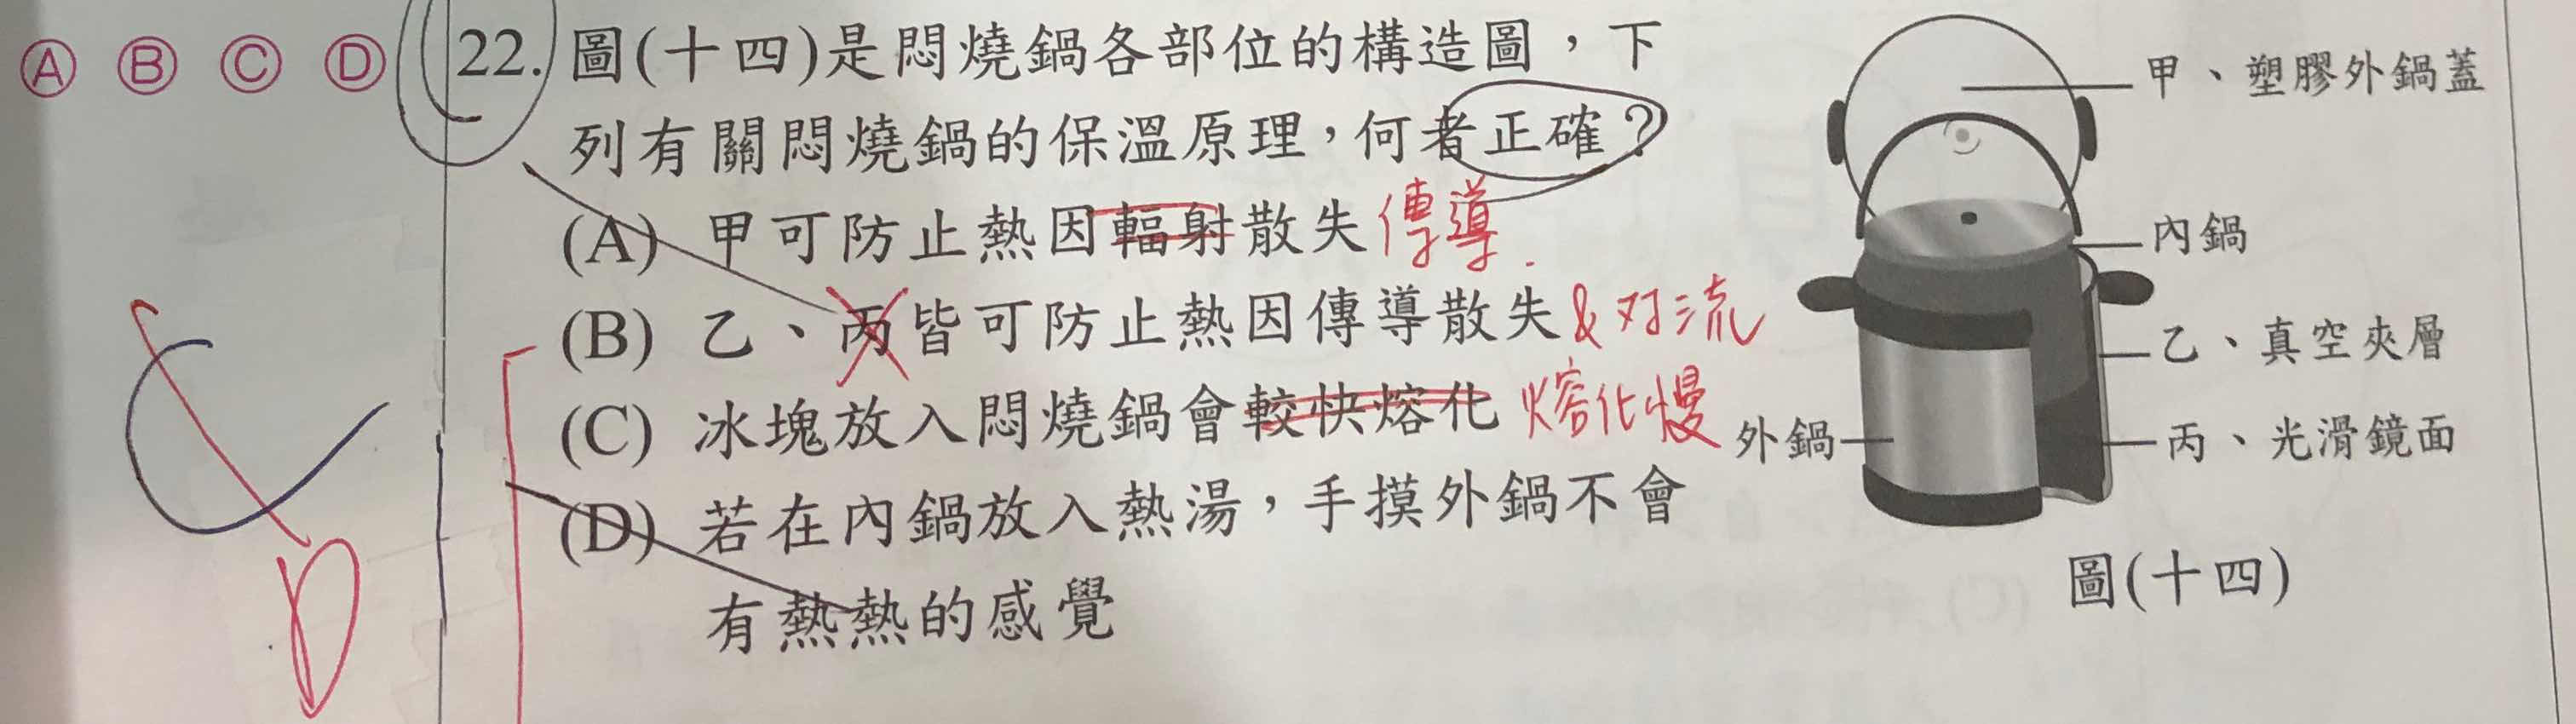 Ⓐ Ⓑ Ⓒ Ⓓ 22. 圖(十四)是悶燒鍋各部位的構造圖，下
列有關悶燒鍋的保溫原理，何者正確？
(A) 甲可防止熱因輻射散失 傳導.
(B) 乙、丙皆可防止熱因傳導散失 & 对流
(C) 冰塊放入悶燒鍋會較快熔化 熔化慢
(D) 若在內鍋放入熱湯，手摸外鍋不會
有熱熱的感覺
C
D
甲、塑膠外鍋蓋
內鍋
乙、真空夾層
外鍋
丙、光滑鏡面
圖(十四)